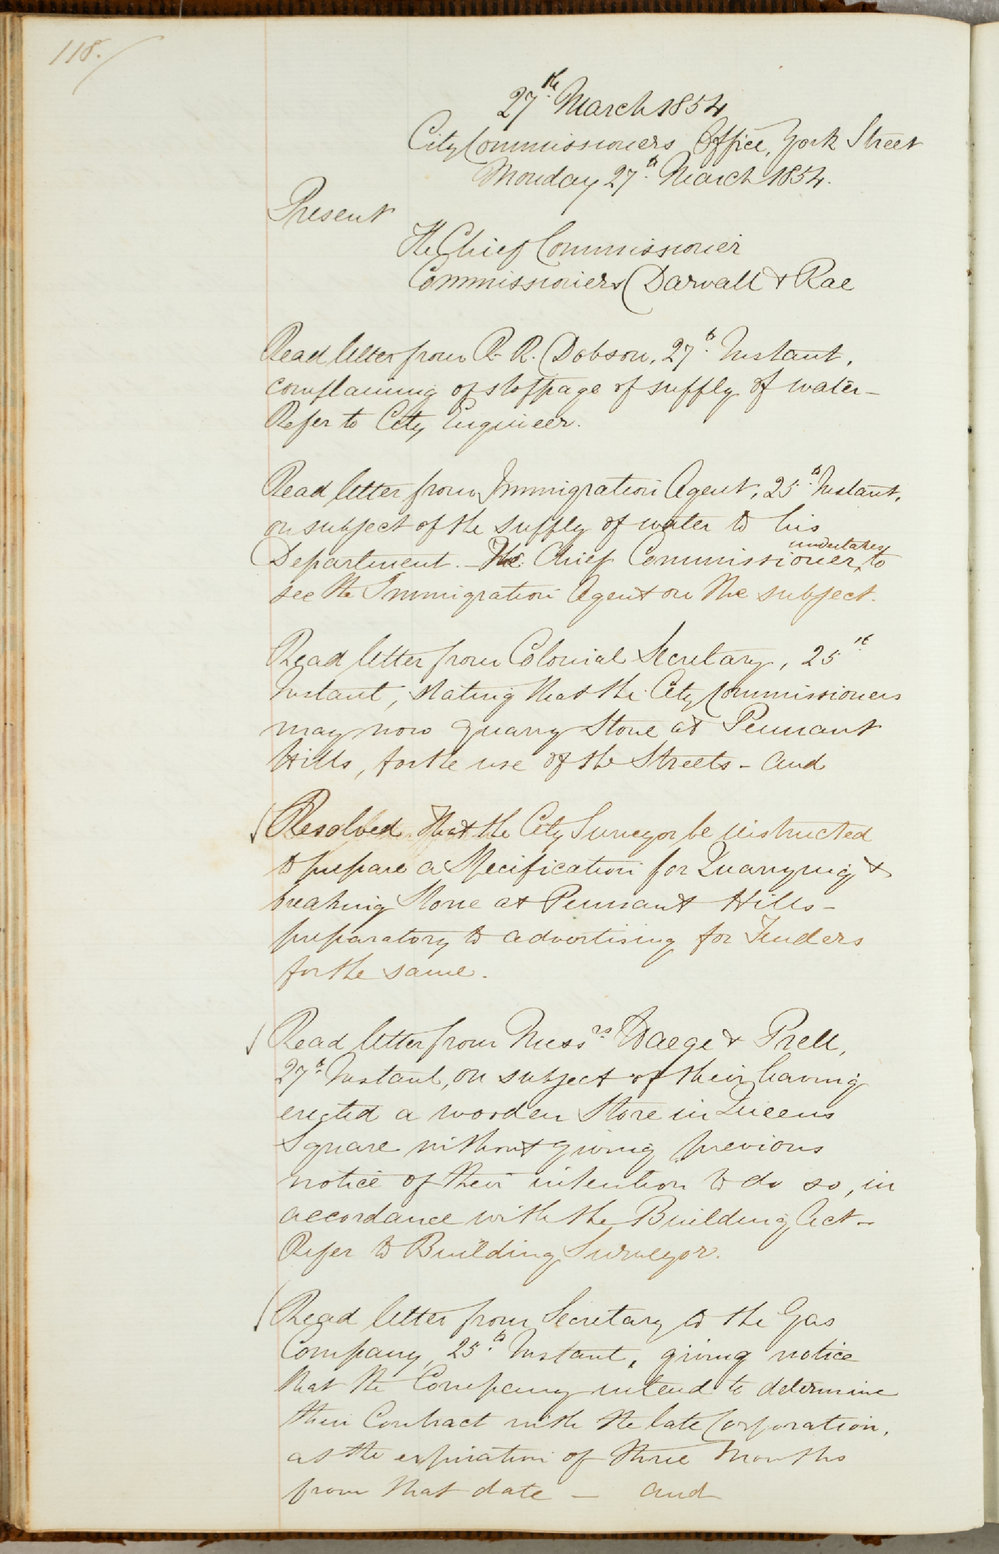 118.
27th March 1854
City Commissioners Office, York Street
Monday 27th March 1854.
Present
The Chief Commissioner
Commissioners Darvall & Rae
Read letter from R. R. Dobson, 27th Instant,
complaining of stoppage of supply of water -
Refer to City Engineer.
Read letter from Immigration Agent, 25th Instant,
on subject of the supply of water to his
Department. - The Chief Commissioner undertakes to
see the Immigration Agent on the subject.
Read letter from Colonial Secretary, 25th
Instant, stating that the City Commissioners
may now quarry Stone at Pennant
Hills, for the use of the Streets - and
Resolved that the City Surveyor be instructed
to prepare a Specification for Quarrying &
breaking Stone at Pennant Hills -
preparatory to advertising for Tenders
for the same.
Read letter from Messrs Waege & Prell,
27th Instant, on subject of their having
erected a wooden Store in Queens
Square without giving previous
notice of their intention to do so, in
accordance with the Building Act -
Refer to Building Surveyor.
Read letter from Secretary to the Gas
Company, 25th Instant, giving notice
that the Company intend to determine
their Contract with the late Corporation,
at the expiration of three Months
from that date - and